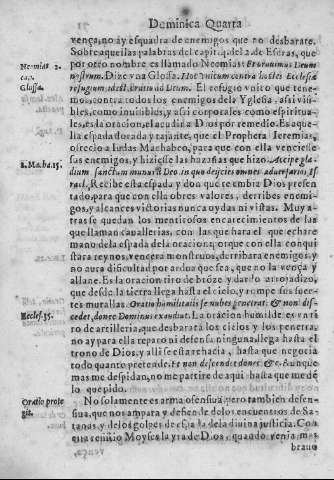 Dominica Quarta
vença, no ay esquadra de enemigos que no desbarate.
Sobre aquellas palabras del capit. 4. del 2. de Esdras, que
por otro nombre es llamado Neemias: Et oravimus Deum
nostrum. Dize vna Glossa. Hoc vnicum contra hostes Ecclesiæ
refugium, id est, oratio ad Deum. El refugio vnico que tene-
mos, contra todos los enemigos dela Yglesia, assi visi-
bles, como inuisibles, assi corporales, como espiritua-
les, es la oracion, el acudir a Dios por remedio. Es aque-
lla espada dorada y tajante, que el Propheta Ieremias,
ofrecio a Iudas Machabeo, para que con ella venciesse
sus enemigos, y hiziesse las hazañas que hizo. Accipe gla-
dium sanctum munus à Deo in quo deijcies omnes aduersarios Is
rael. Recibe esta espada y don que te embia Dios presen-
tado, para que con ella obres valores, derribes enemi-
gos, y alcances victorias nunca oydas ni vistas. Muy a-
tras se quedan los mentirosos encarecimientos de las
que llaman cauallerias, con las que hara el que echare
mano dela espada dela oracion: que con ella conqui
stara reynos, vencera monstruos, derribara enemigos, y
no aura dificultad por ardua que sea, que no la vença y
allane. Es la oracion tiro de bronze y dardo arrojadizo,
que desde la tierra llega hasta el cielo, y rompe sus fuer-
tes murallas. Oratio humilitatis se nubes penetrat, & non dis-
cedet, donec Dominus exaudiat. La oracion humilde es en ti
ro de artilleria, que desbarata los cielos y los penetra,
no ay para ella reparo ni defensa ninguna, llega hasta el
trono de Dios, y alli se esta reacia, hasta que negocia
todo quanto pretende. Et non descendet donec &c. Aunque
mas me despidan, no me partire de aqui hasta que me dè
lo que pido.
No solamente es arma ofensiua, pero tambien defen-
siua, que nos ampara y defiende de los encuentros de Sa-
tanas y delos golpes de espada dela diuina justicia. Con
esta remitio Moyses la yra de Dios, quando venia mas
brauo
Neemias 2.
cap.
Glossa.
2. Macha. 15.
Eccles. 35.
Oratio prote
git.